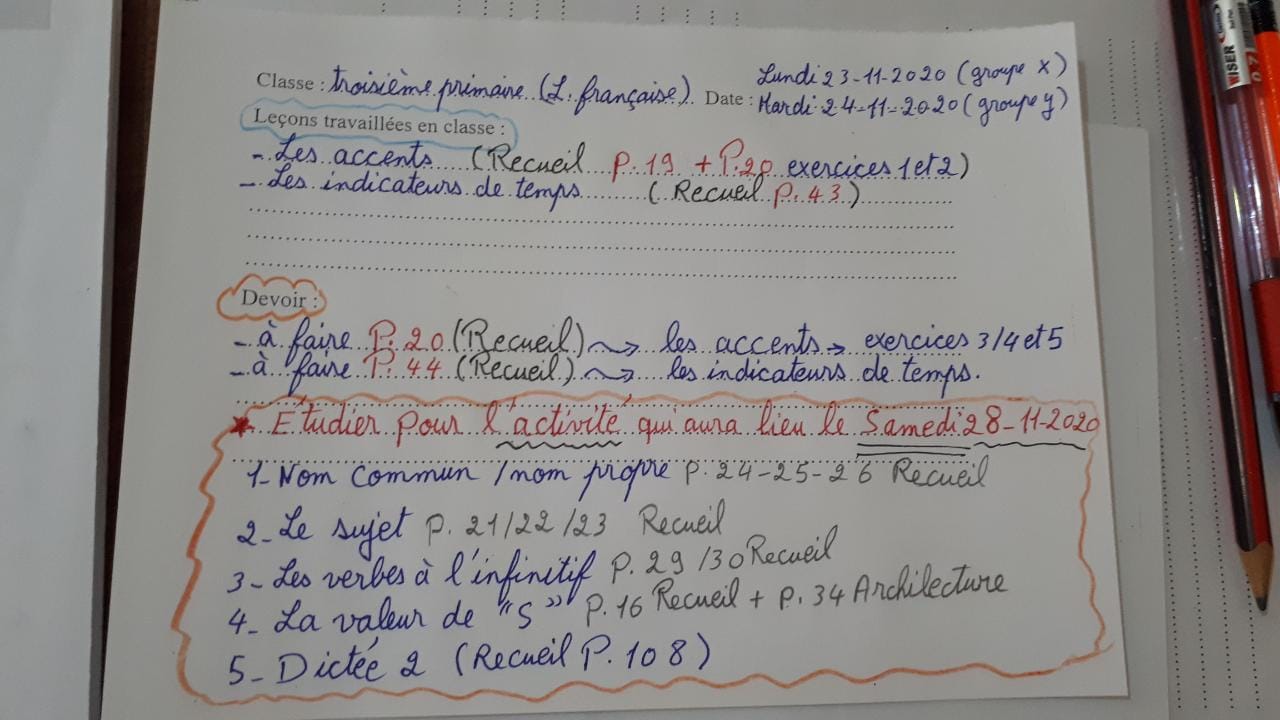 Classe : troisième primaire (L. française) Date : Lundi 23-11-2020 (groupe x)
Mardi 24-11-2020 (groupe y)
Leçons travaillées en classe :
- Les accents (Recueil P.19 + P.20 exercices 1 et 2)
- Les indicateurs de temps (Recueil P.43)
Devoir :
- à faire P.20 (Recueil) → les accents → exercices 3/4 et 5
- à faire P.44 (Recueil) → les indicateurs de temps.
* Etudier pour l'activité qui aura lieu le Samedi 28-11-2020
1- Nom commun / nom propre P. 24-25-26 Recueil
2- Le sujet P. 21/22/23 Recueil
3- Les verbes à l'infinitif P. 29/30 Recueil
4- La valeur de "S" P.16 Recueil + P. 34 Architecture
5- Dictée 2 (Recueil P. 108)
WISER